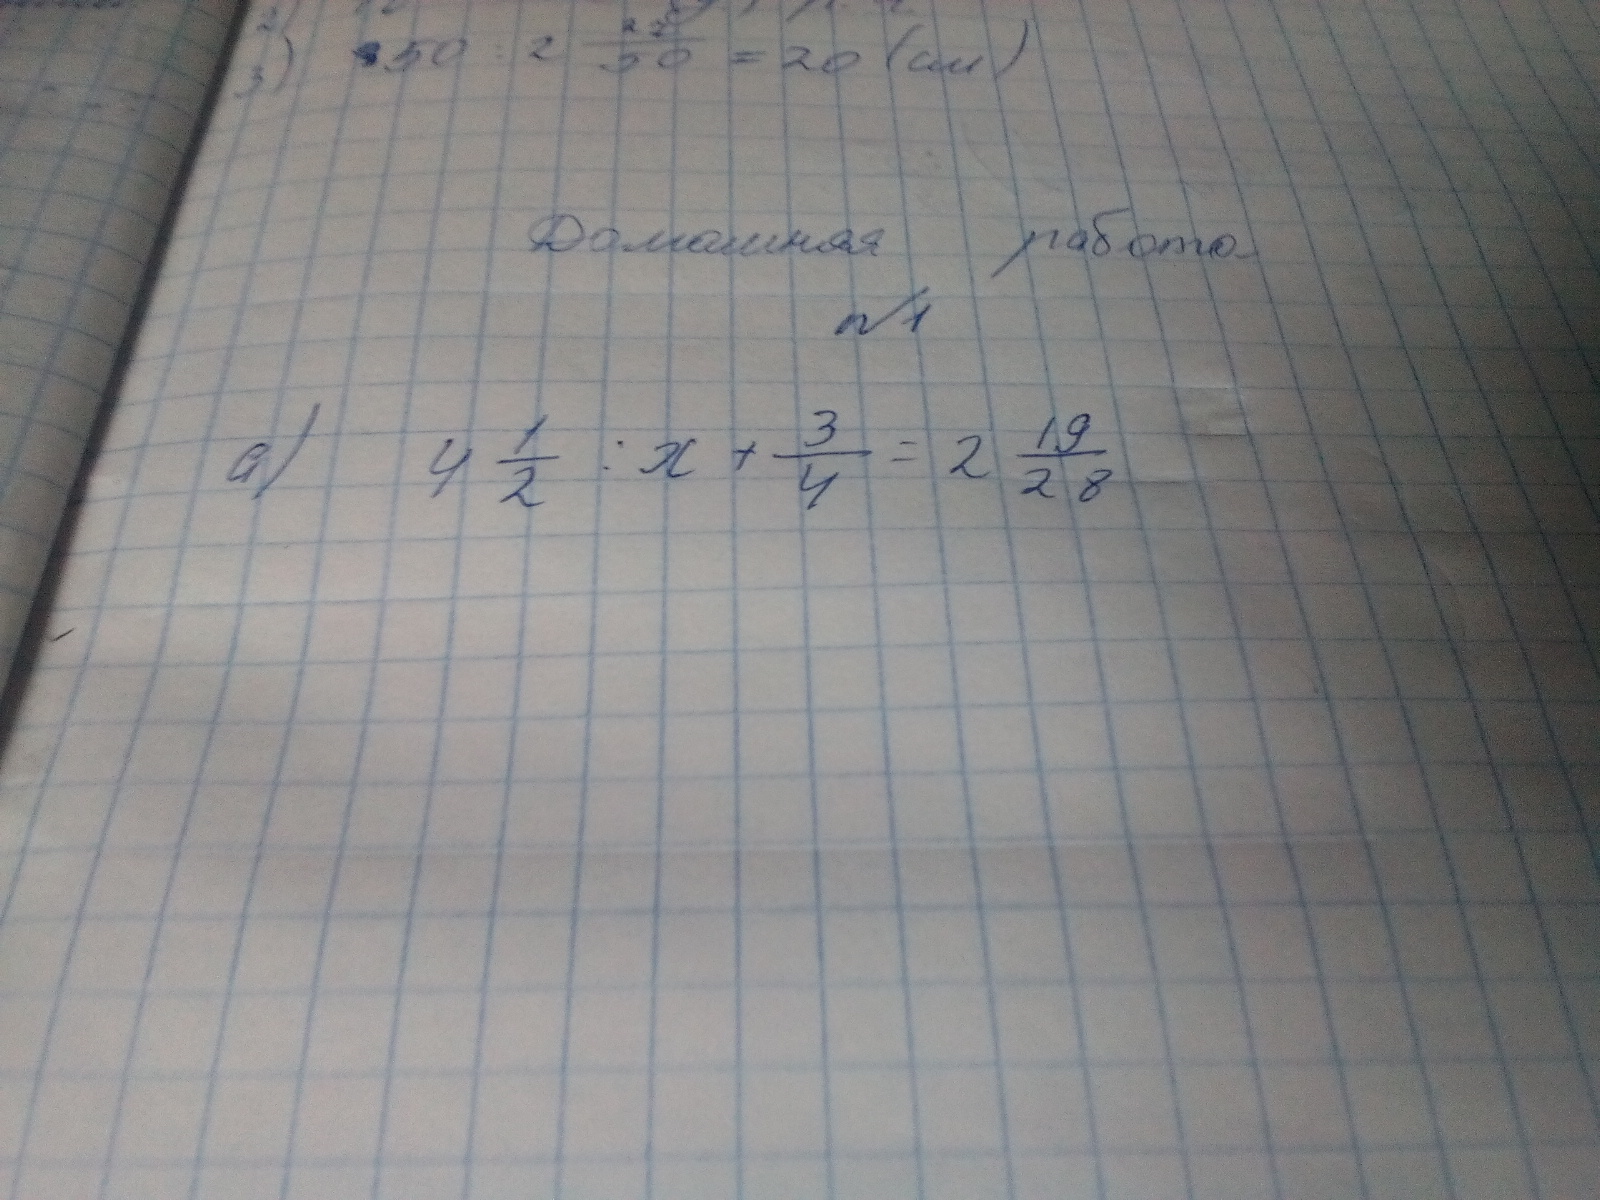 3) 50 : 2 22/50 = 20 (см)
Домашная работа
№1
а) 4 1/2 : x + 3/4 = 2 19/28